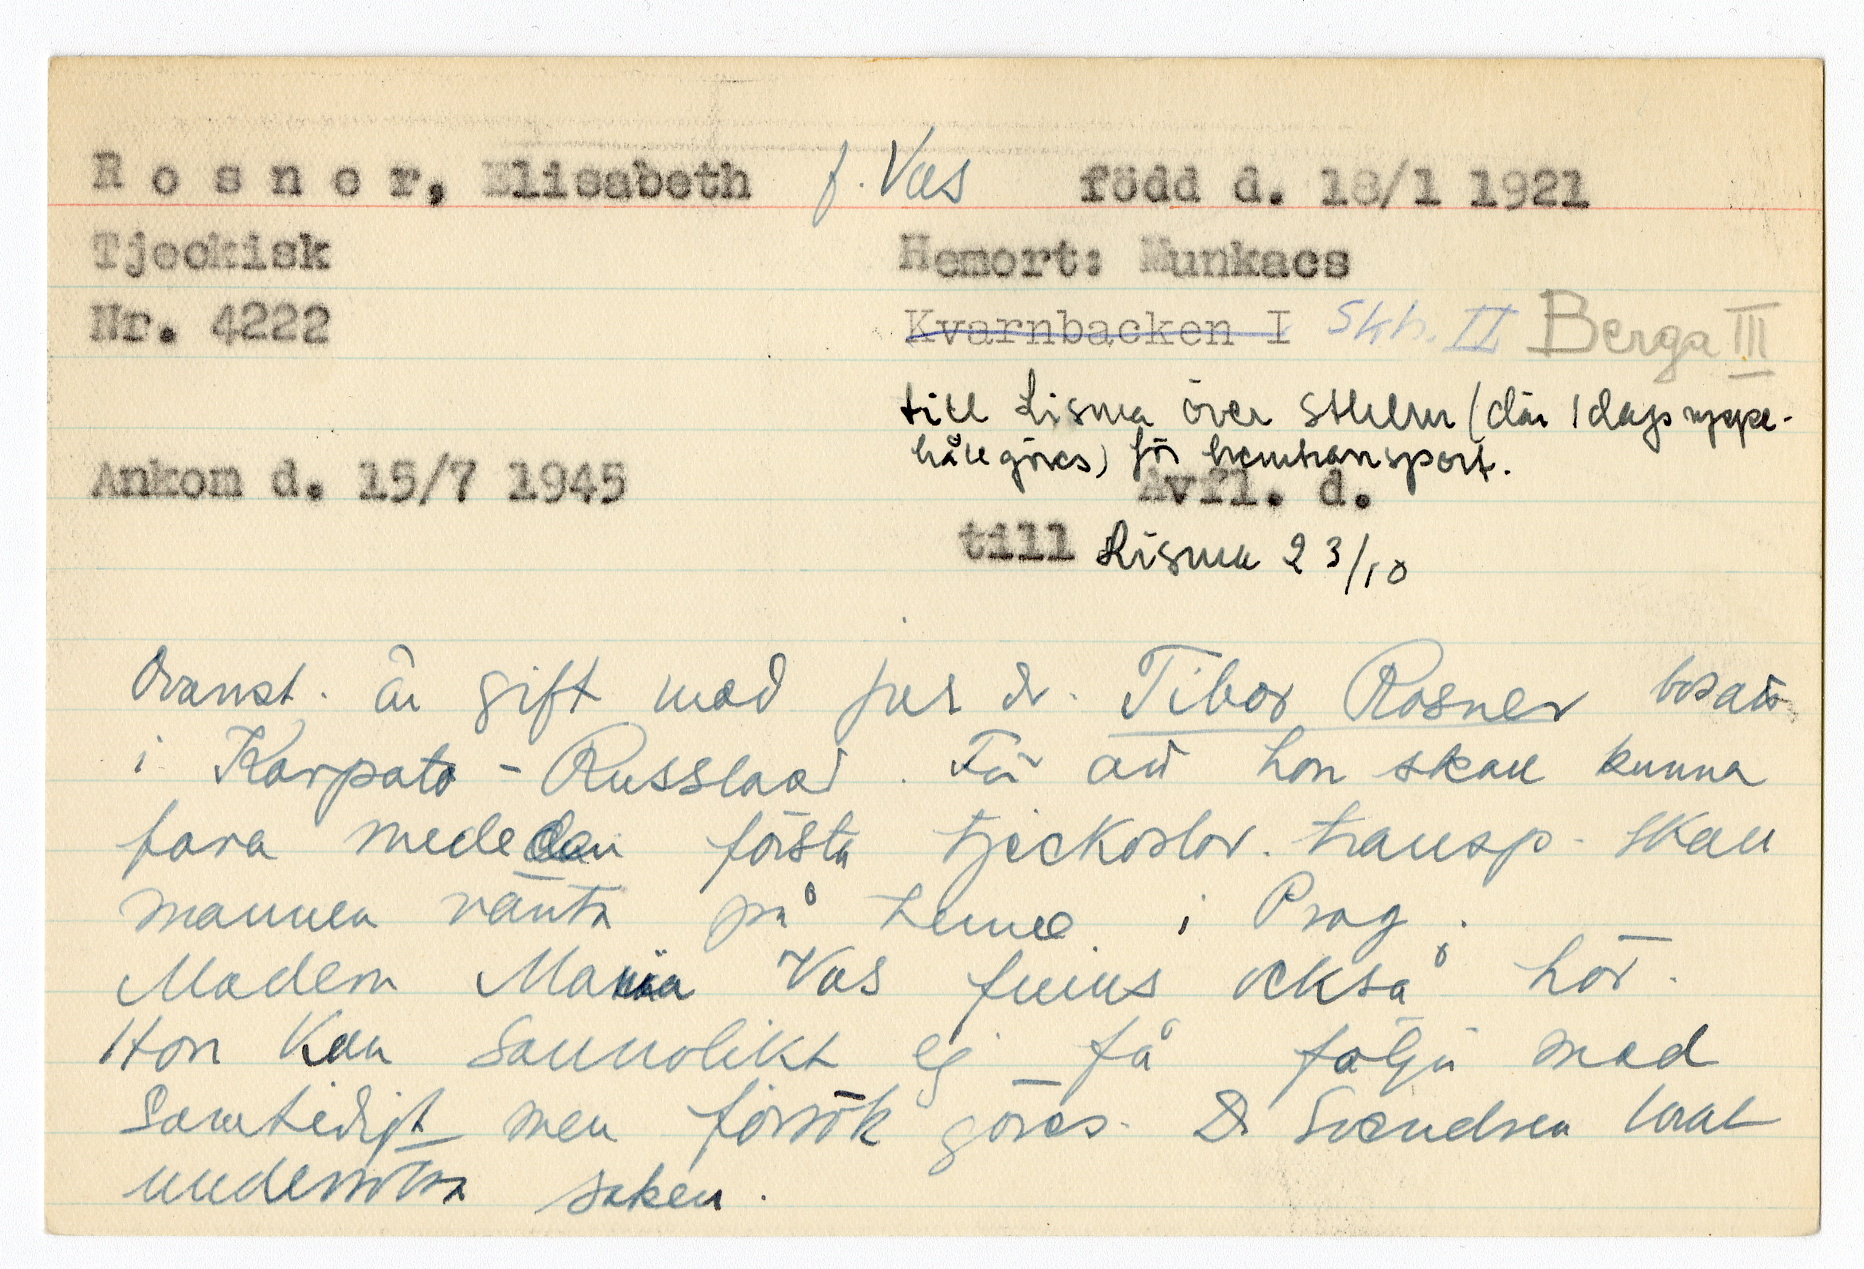 Rosner, Elisabeth f. Vas född d. 18/1 1921
Tjeckisk Hemort: Munkacs
Nr. 4222 Kvarnbacken I Skh. II Berga III
till Lisma över Sthlm (där 1 dags uppe-
håll göres) för hemtransport.
Ankom d. 15/7 1945 Avfl. d.
till Lisma 23/10
Ovanst. är gift med jur dr. Tibor Rosner bosatt
i Karpato-Russland. För att hon skall kunna
fara med den första tjeckoslov. transp. skall
mannen vänta på henne i Prag.
Modern Maria Vas finns också här.
Hon kan sannolikt ej få följa med
samtidigt men försök göres. Dr Svendsen lovat
undersöka saken.